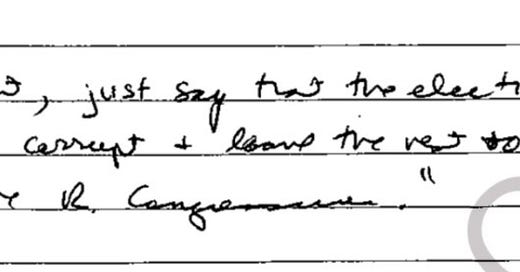 , just say that the elect
corrupt + leave the rest to
R. Congressmen."